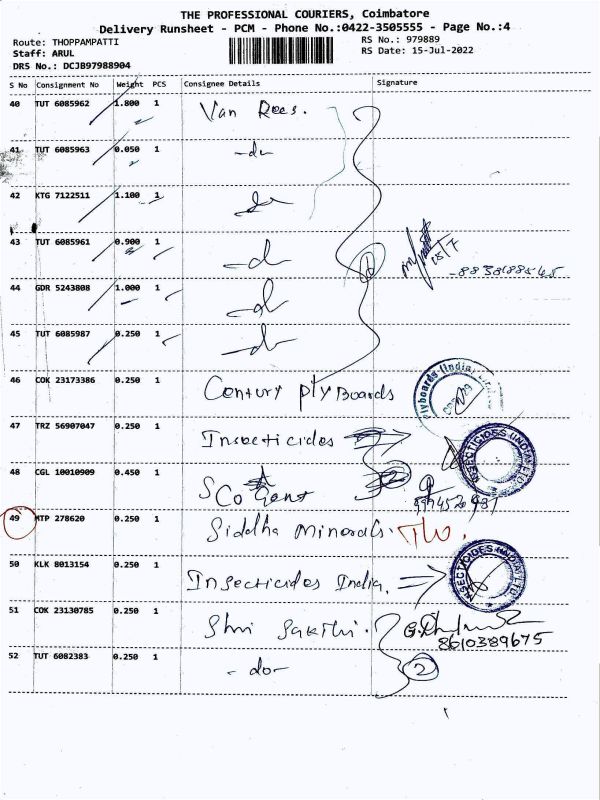 THE PROFESSIONAL COURIERS, Coimbatore
Delivery Runsheet - PCM - Phone No.:0422-3505555 - Page No.:4
Route: THOPPAMPATTI
RS No.: 979889
Staff: ARUL
RS Date: 15-Jul-2022
DRS No.: DCJB97988904
S No Consignment No Weight PCS Consignee Details Signature
40 TUT 6085962 1.800 1 Van Rees.
41 TUT 6085963 0.050 1 -do-
42 KTG 7122511 1.100 1 do
43 TUT 6085961 0.900 1 -do
15/7
44 GDR 5243808 1.000 1 -do
45 TUT 6085987 0.250 1 -do-
46 COK 23173386 0.250 1 Century plyBoards
plyboards (India)
47 TRZ 56907047 0.250 1 Insecticides
INSECTICIDES (INDIA) LTD
48 CGL 10010909 0.450 1
49 MTP 278620 0.250 1 Siddha Minerals.
50 KLK 8013154 0.250 1 Insecticides India.
INSECTICIDES (INDIA) LTD
51 COK 23130785 0.250 1 Shri Sakthi.
8610389675
52 TUT 6082383 0.250 1 - do -
2